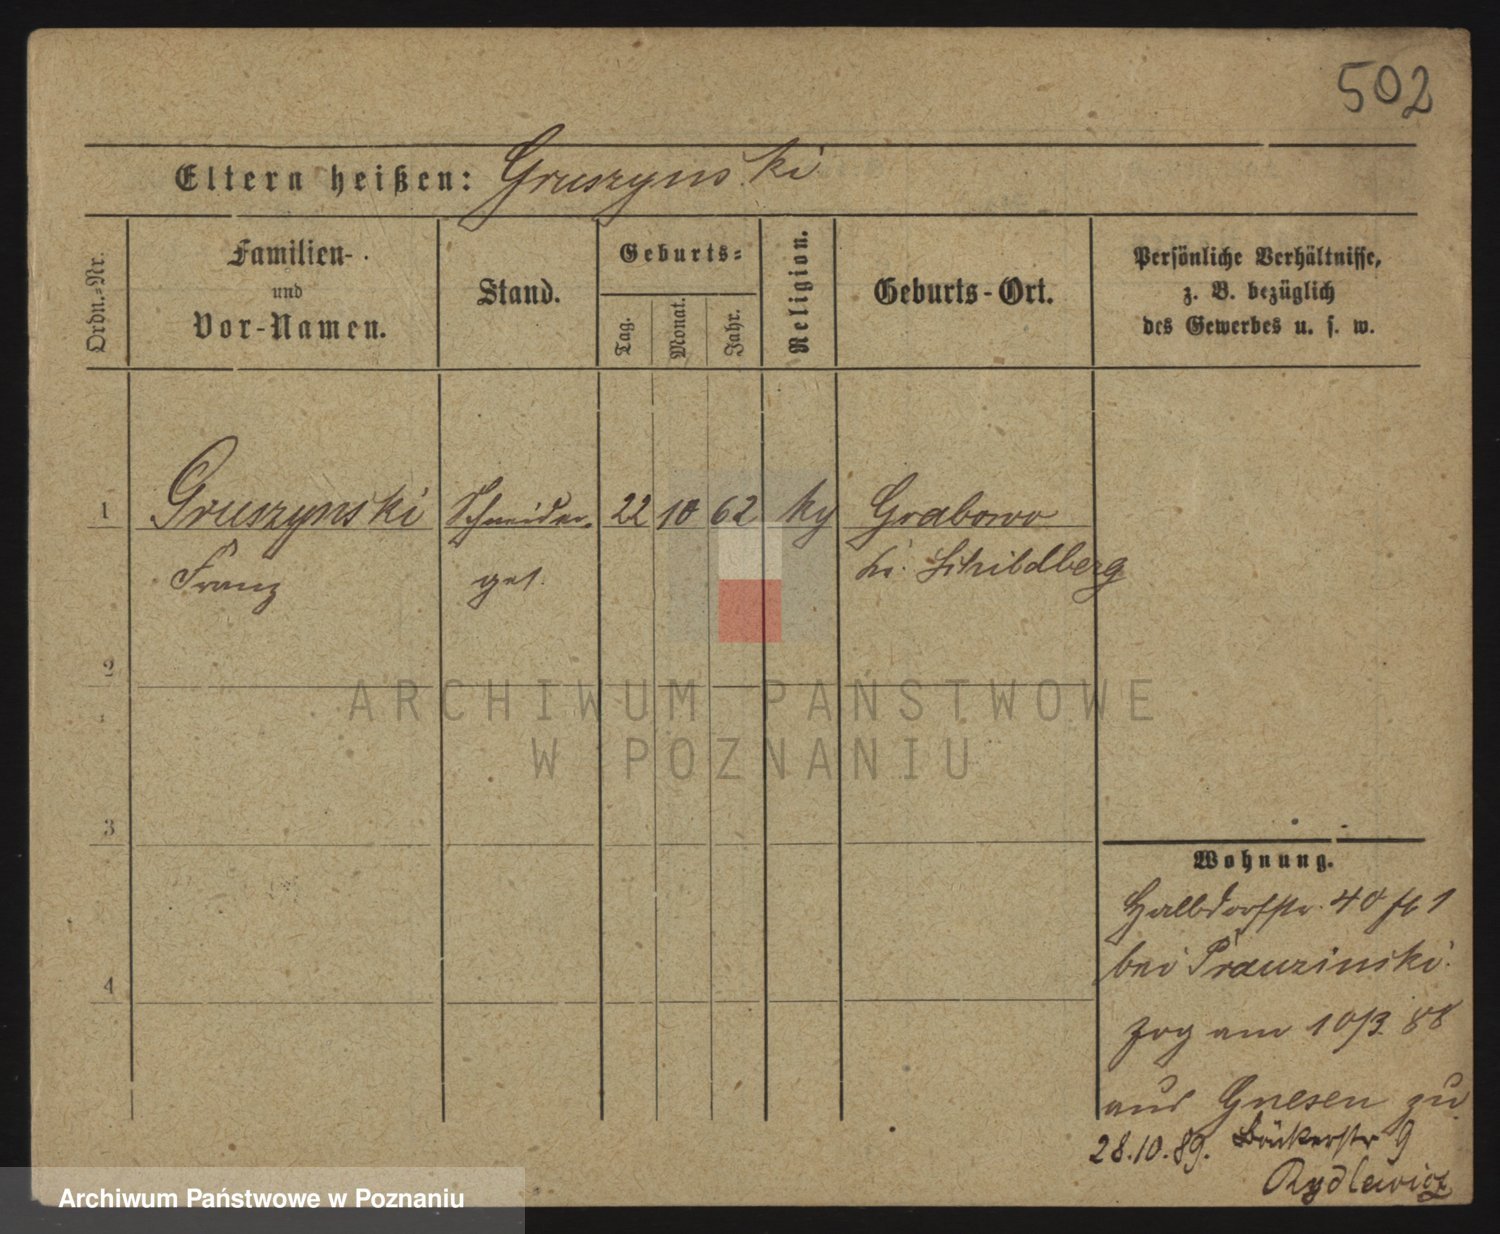 502
Eltern heißen: Gruszynski
Ordn.-Nr.
Familien-
und
Vor-Namen.
Stand.
Geburts-
Tag.
Monat.
Jahr.
Religion.
Geburts-Ort.
Persönliche Verhältnisse,
z. B. bezüglich
des Gewerbes u. s. w.
1 Gruszynski Schneider- 22 10 62 ky Grabowo
Franz ges. Kr. Schildberg
2
ARCHIWUM PAŃSTWOWE
W POZNANIU
3
Wohnung.
Halbdorfstr. 40
bei Prauzinski.
4
zog am 10/3. 88
aus Gnesen zu.
28.10.89. Bäckerstr 9
Rydlewicz
Archiwum Państwowe w Poznaniu